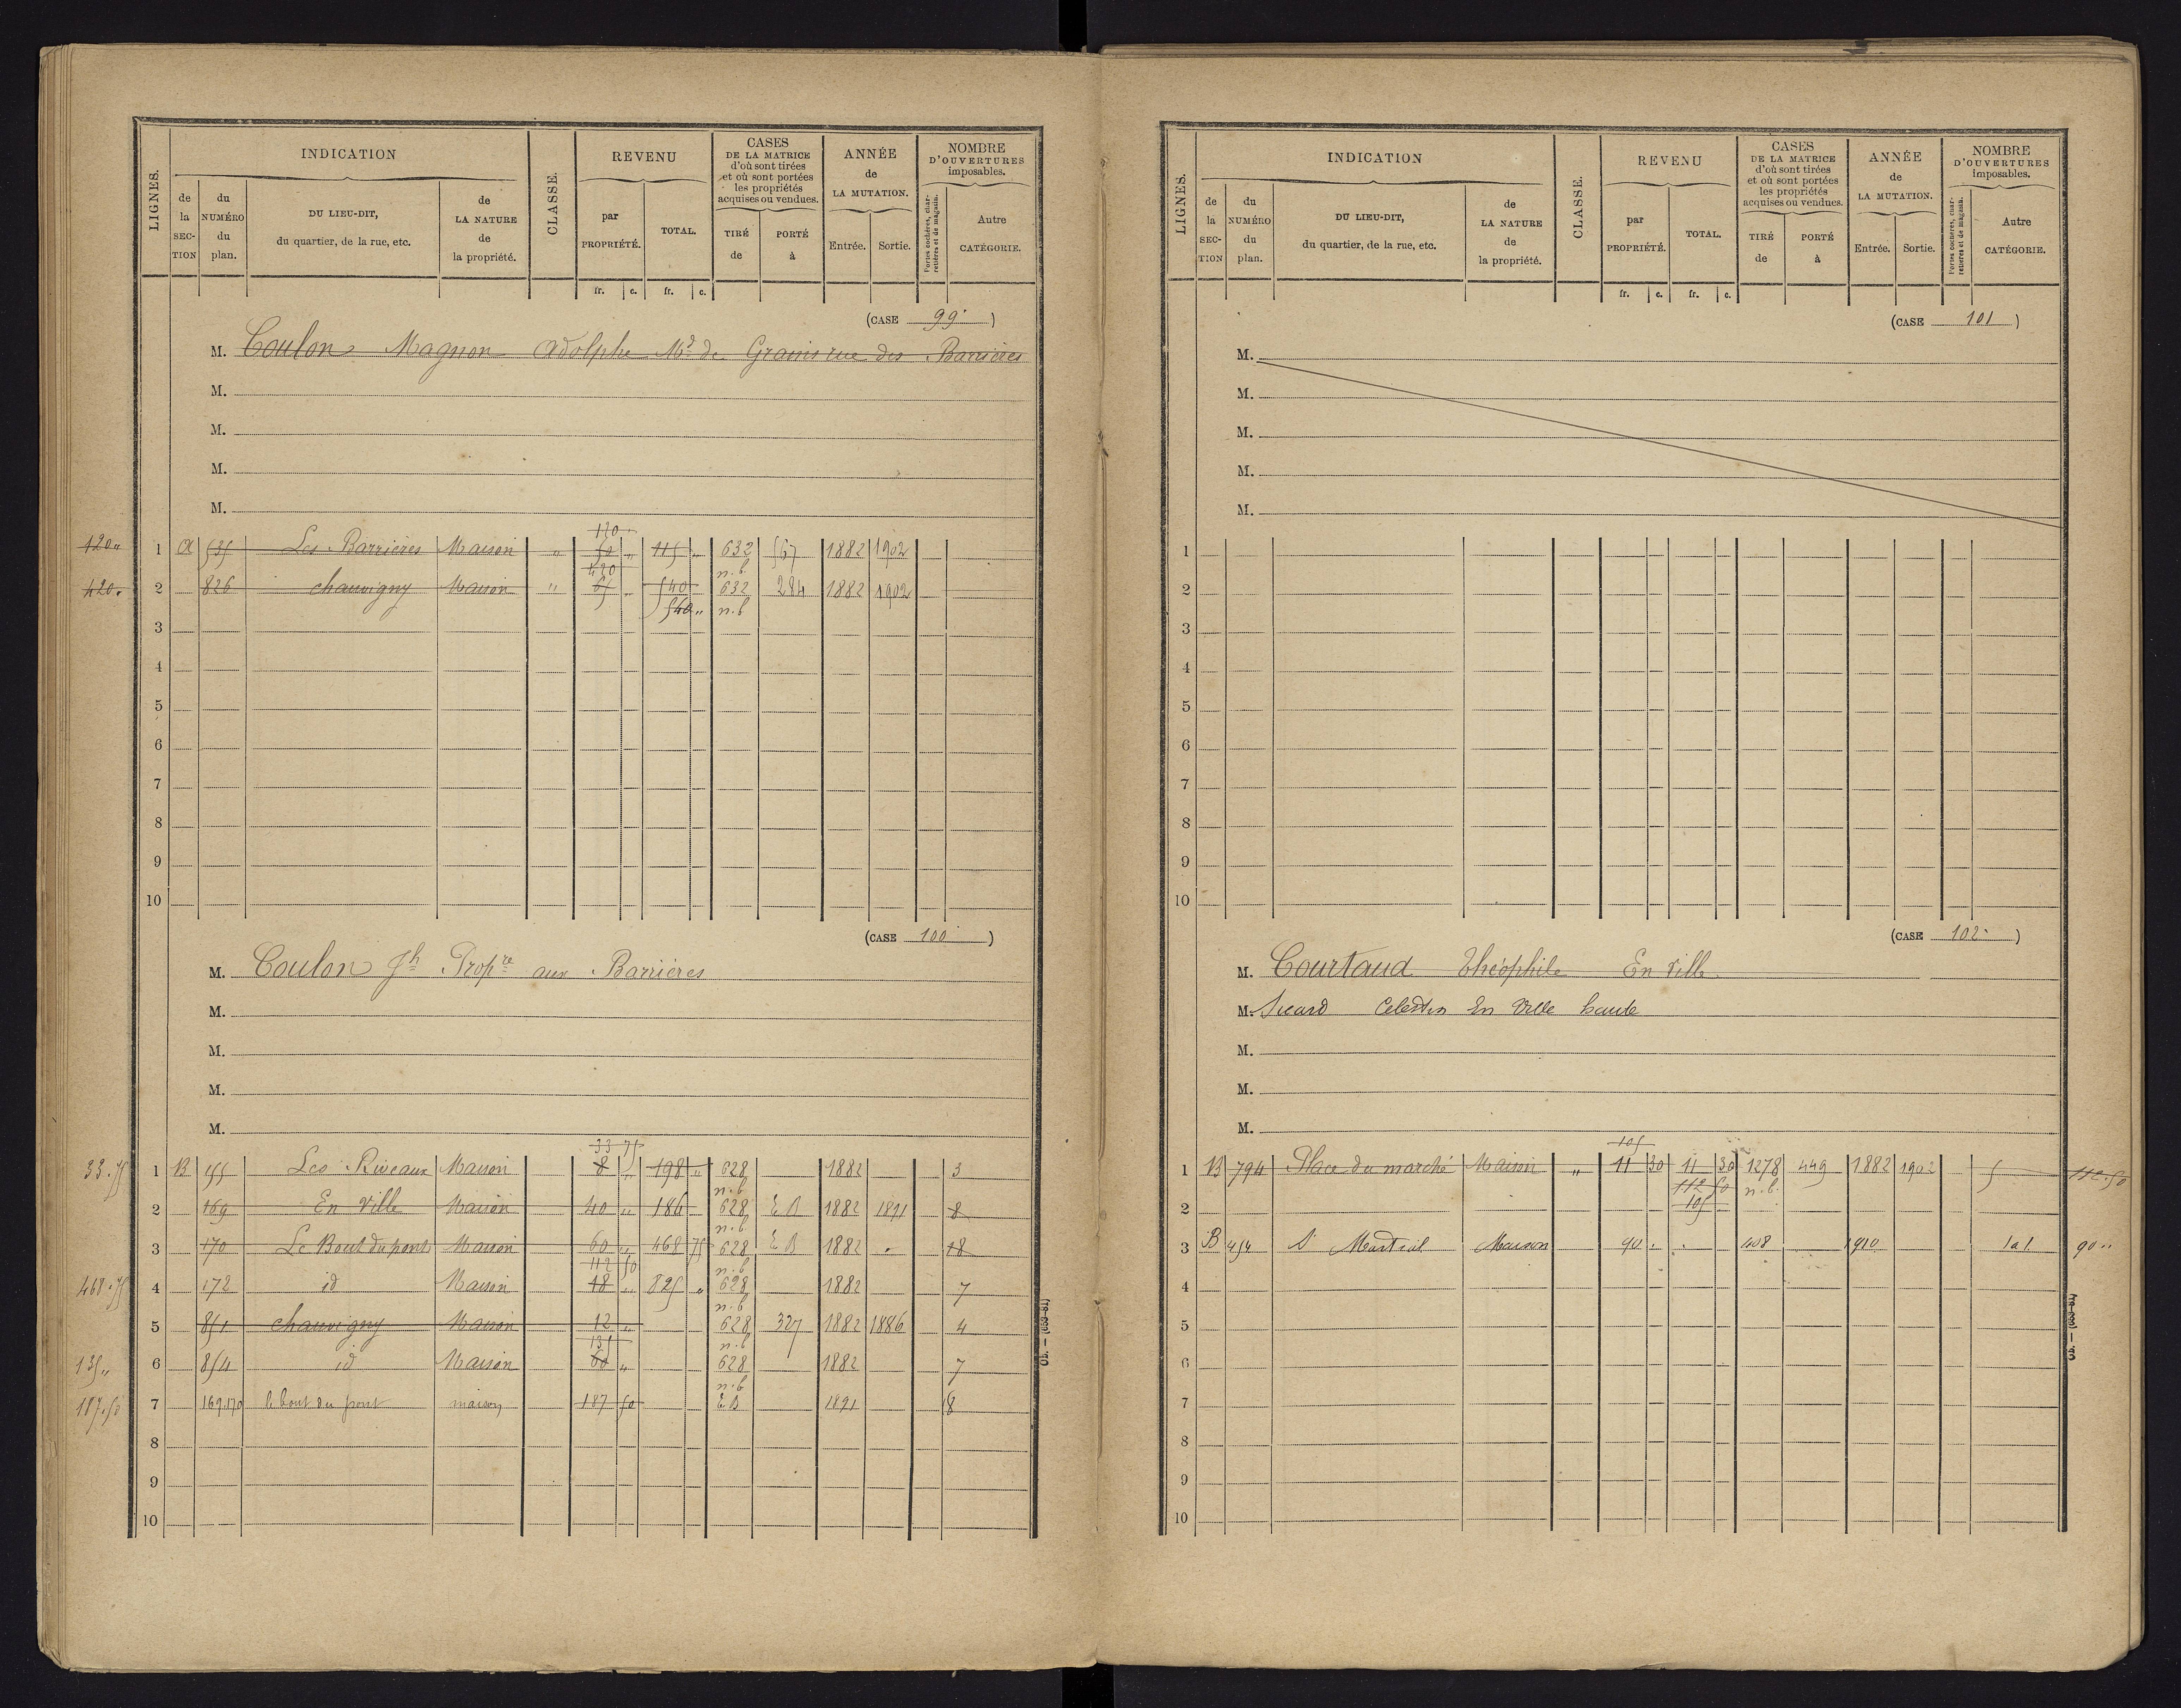 LIGNES.
INDICATION
de la SECTION
du NUMÉRO du plan.
DU LIEU-DIT, du quartier, de la rue, etc.
de LA NATURE de la propriété.
CLASSE.
REVENU
par PROPRIÉTÉ.
TOTAL.
fr. c. fr. c.
CASES DE LA MATRICE d'où sont tirées et où sont portées les propriétés acquises ou vendues.
TIRÉ de
PORTÉ à
ANNÉE de LA MUTATION.
Entrée. Sortie.
NOMBRE D'OUVERTURES imposables.
Portes cochères, charretières et de magasin.
Autre CATÉGORIE.
(CASE 99)
M. Coulon Magnon Adolphe Md de Grains rue des Barrières
M.
M.
M.
M.
120
120 " 1 A 535 Les Barrières Maison " 50 " 115 " 632 567 1882 1902
420 n.b.
420 . 2 826 chauvigny Maison " 65 " 540 632 284 1882 1902
540 " n.b
3
4
5
6
7
8
9
10
(CASE 100)
M. Coulon Jh Propre aux Barrières
M.
M.
M.
M.
33 75
33.75 1 B 155 Les Riveaux Maison 8 " 198 " 628 1882 3
n.b
2 169 En Ville Maison 40 " 186 628 E B 1882 1891 8
n.b
3 170 Le Bout du pont Maison 60 " 468 75 628 E B 1882 " 18
112 50 n.b
468.75 4 172 id Maison 18 " 825 " 628 1882 7
n.b
5 851 chauvigny Maison 12 " 628 327 1882 1886 4
135 n.b
135 " 6 854 id Maison 60 " 628 1882 7
n.b
187.50 7 169.170 le bout du pont maison 187 50 E B 1891 18
8
9
10
LIGNES.
INDICATION
de la SECTION
du NUMÉRO du plan.
DU LIEU-DIT, du quartier, de la rue, etc.
de LA NATURE de la propriété.
CLASSE.
REVENU
par PROPRIÉTÉ.
TOTAL.
fr. c. fr. c.
CASES DE LA MATRICE d'où sont tirées et où sont portées les propriétés acquises ou vendues.
TIRÉ de
PORTÉ à
ANNÉE de LA MUTATION.
Entrée. Sortie.
NOMBRE D'OUVERTURES imposables.
Portes cochères, charretières et de magasin.
Autre CATÉGORIE.
(CASE 101)
M.
M.
M.
M.
M.
1
2
3
4
5
6
7
8
9
10
(CASE 102)
M. Courtaud Théophile En Ville
M. Sicard Celestin En Ville haute
M.
M.
M.
105
1 B 794 Place du marché Maison " 11 30 11 30 1278 449 1882 1902 5 112.50
112 50 n.b.
2 105
3 B 454 St Martial Maison 90 . . 408 1910 1 a 1 90 "
4
5
6
7
8
9
10